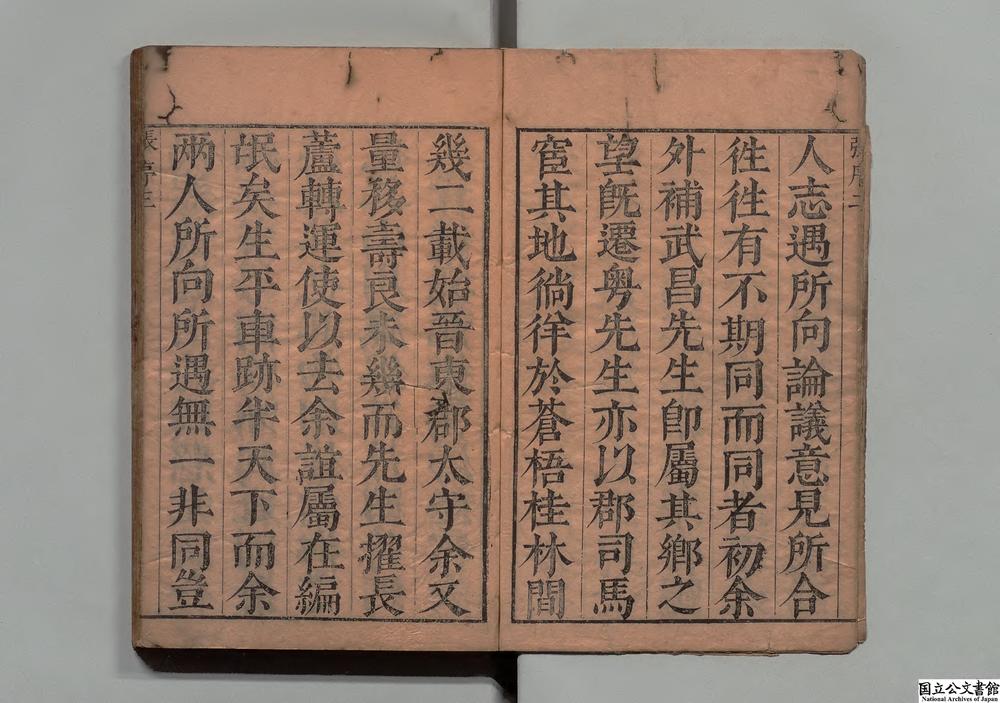 人志遇所向論議意見所合
徃徃有不期同而同者初余
外補武昌先生卽屬其鄉之
望旣遷粤先生亦以郡司馬
宦其地徜徉於蒼梧桂林間
幾二載始晉東郡太守余又
量移壽良未幾而先生擢長
蘆轉運使以去余誼屬在編
氓矣生平車跡半天下而余
兩人所向所遇無一非同豈
張序三
国立公文書館
National Archives of Japan